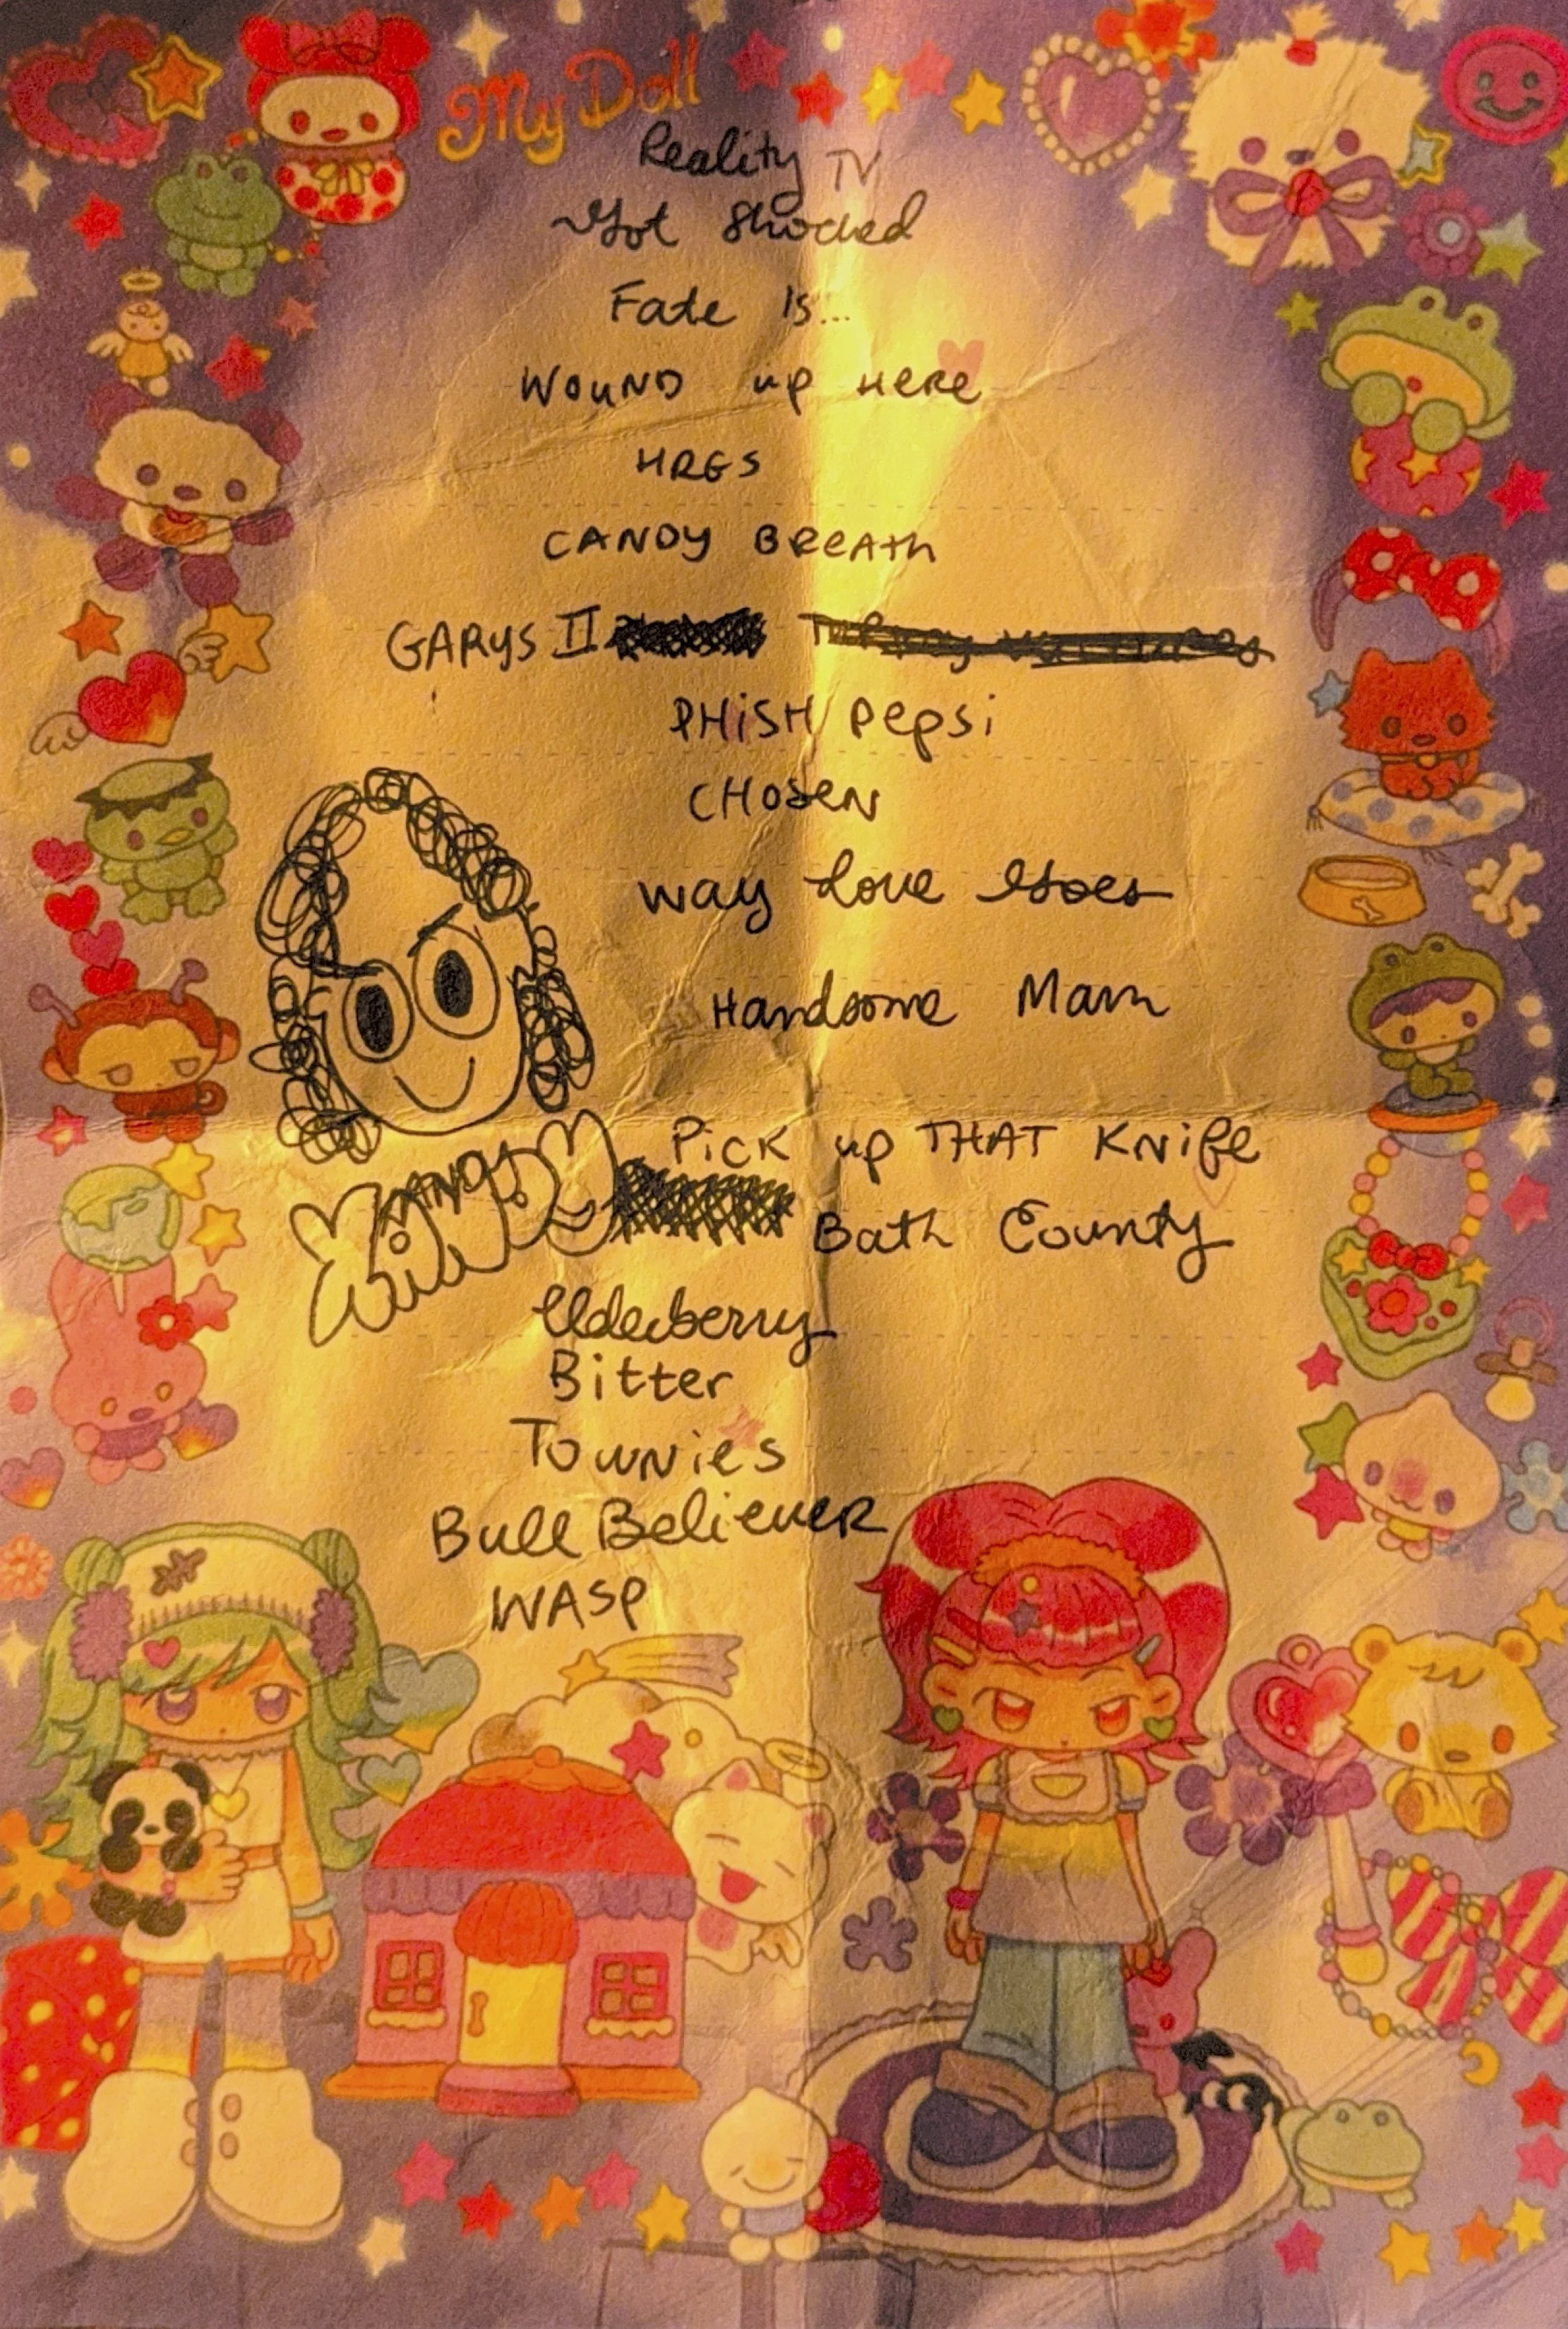 My Doll
Reality TV
Got Shocked
Fate Is...
WOUND up HERE
HRGS
CANDY BREATH
GARYS II
PHISH pepsi
CHOSEN
way Love Goes
Handsome Man
Pick up THAT KNife
Bath County
Elderberry
Bitter
Townies
Bull Believer
WASP